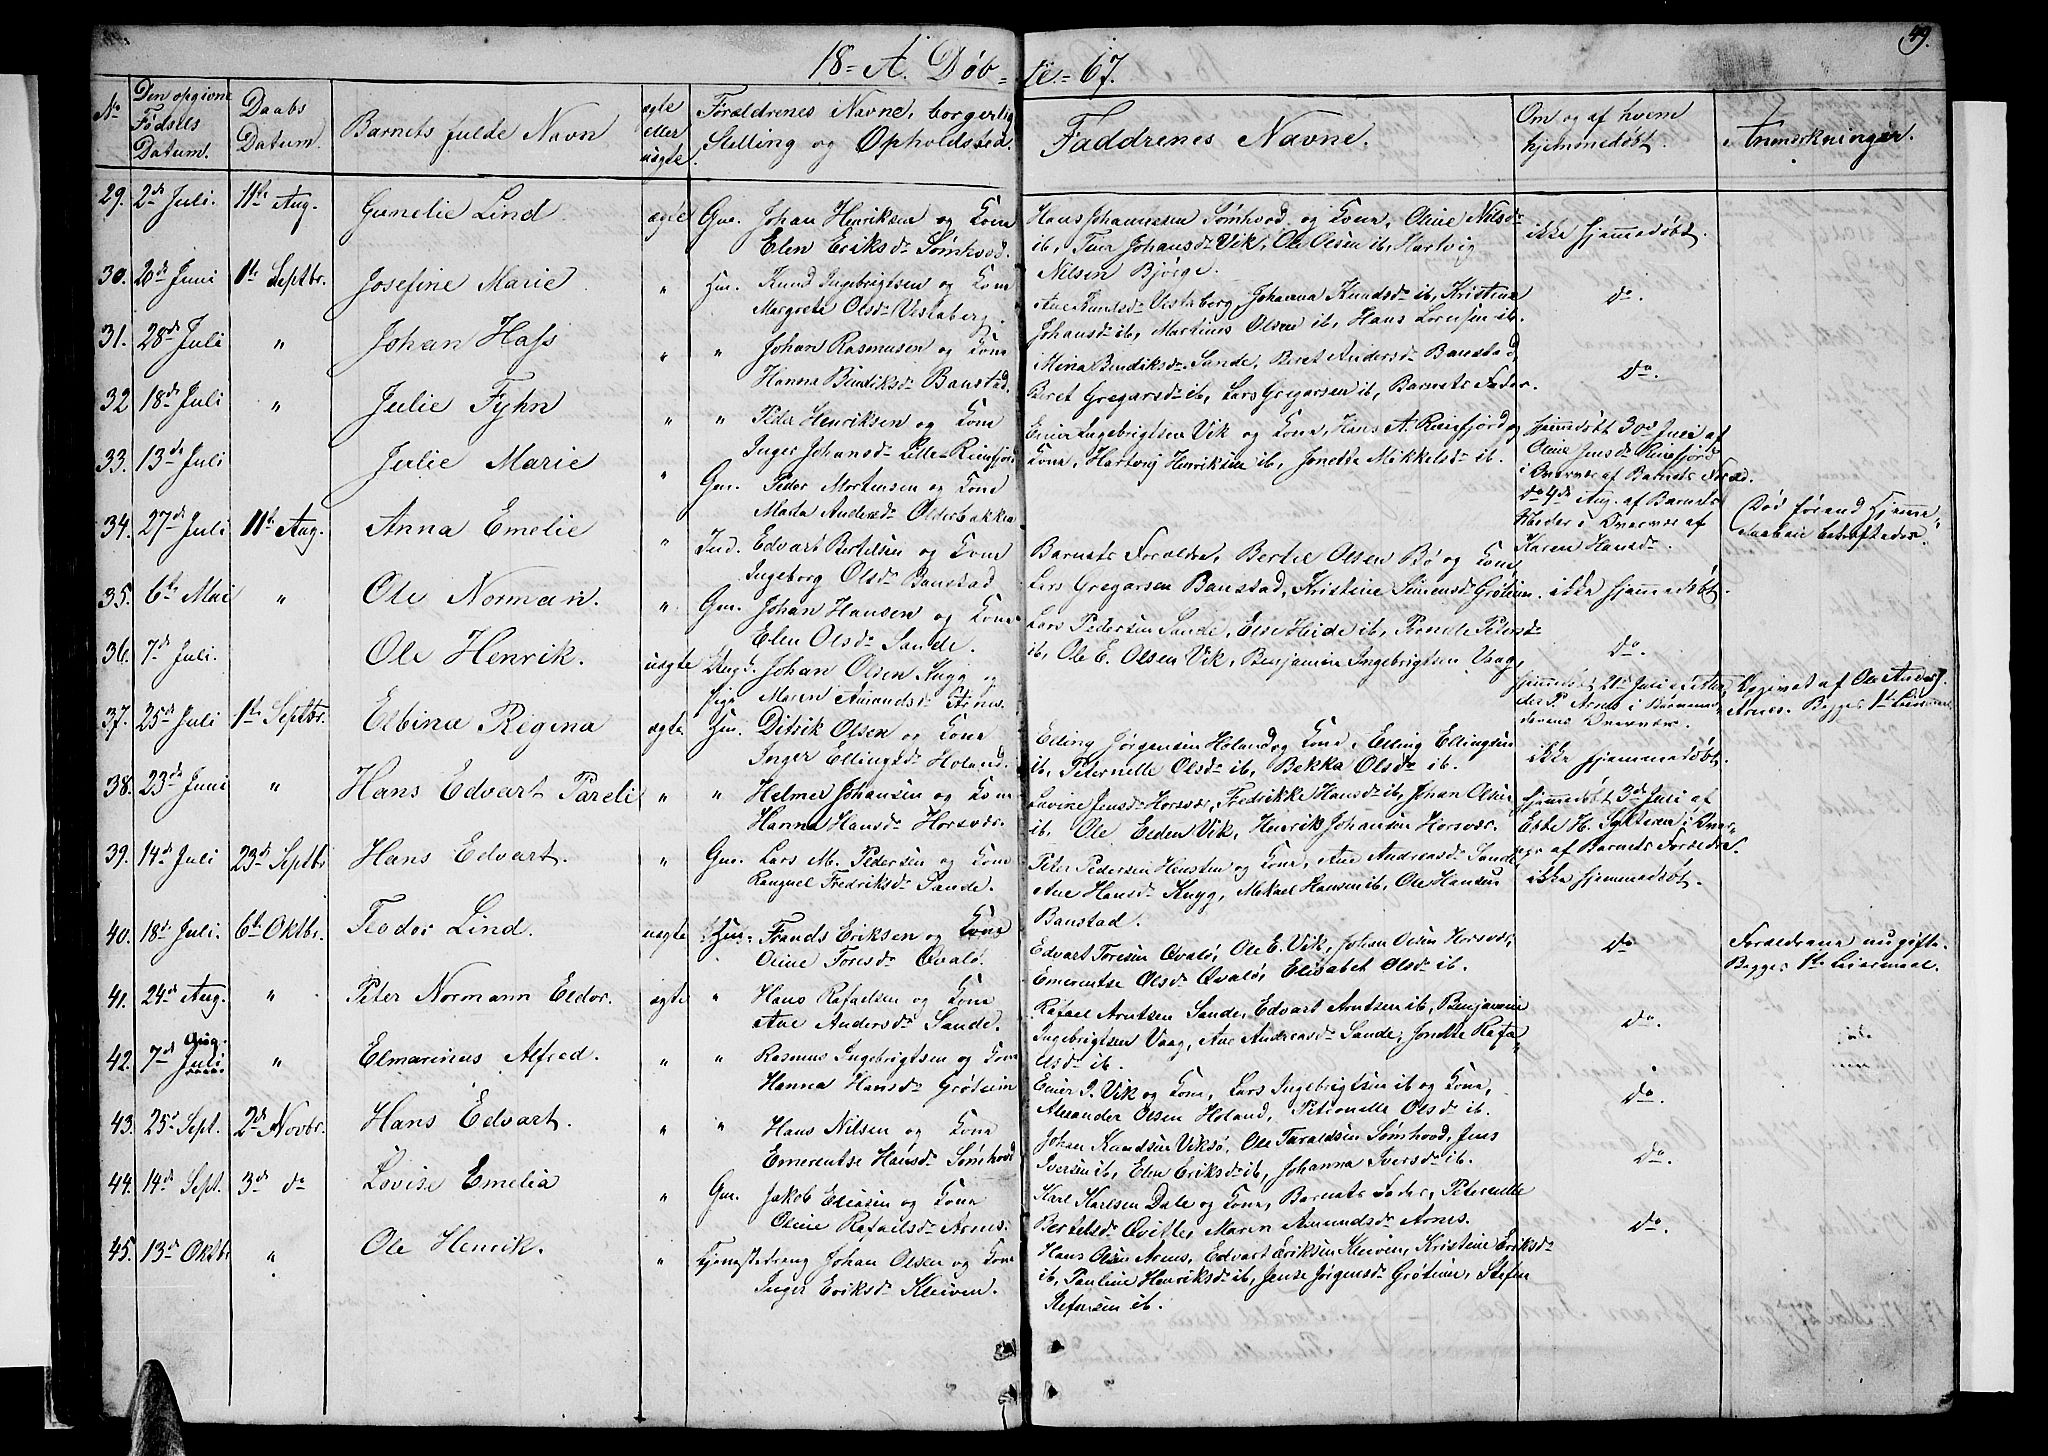 49.
18 = A. Døb = te = 67.
No
Den opgivne Fødsels Datum.
Daabs Datum.
Barnets fulde Navn
ægte eller uægte
Forældrenes Navne, borgerlig Stilling og Opholdssted.
Faddrenes Navne.
Om og af hvem hjemmedøbt.
Anmærkninger.
29. 2de Juli. 11te Aug. Gunelie Lind. ægte Gm. Johan Henriksen og Kone
Elen Eriksdr Sømhovd.
Hans Johannesen Sømhovd og Kone, Oline Nilsdr
ib, Johansdr Vik, Ole Olsen ib, Hartvig
Nilsen Bjørge.
ikke hjemmedøbt.
30. 26de Juni 1te Septbr. Josefine Marie. " Hm. Knud Ingebrigtsen og Kone
Margrete Olsdr Vestaberg.
Ane Knudsdr Vestaberg, Johanna Knudsdr ib, Kristine
Johansdr ib, Martines Olsen ib, Hans Lornsen ib.
do.
31. 28de Juli " Johan Hass " " Johan Rasmusen og Kone
Hanna Bendiksdr Banstad.
Mina Bendiksdr Sande, Beret Andersdr Banstad,
Beret Gregarsdr ib, Lars Gregarsen ib, Barnets Fader.
do.
32 18de Juli " Julie Fyhn " " Peder Henriksen og Kone
Inger Johansdr Lille-Reinfjord
Einer Ingebrigtsen Vik og Kone, Hans A. Reinfjord og
Kone, Hartvig Henriksen ib, Jonetta Mikkelsdr ib.
Hjemmedøbt 30te Juli af
Oline Jensdr Reinfjord
i Overvær af Barnets Foræld.
33. 13de Juli Julie Marie " Gm. Peder Mortensen og Kone
Marta Andersdr Olderbakken
do 4de Aug. af Barnets
Moder i Overvær af
Karen Hansdr.
Død førend Hjemme
daaben bekræftedes.
34. 27de Juli 11te Aug. Anna Emelie " Ind. Edvart Bertelsen og Kone
Ingeborg Olsdr Banstad
Barnets Forældre, Bertel Olsen Bø og Kone,
Lars Gregarsen Banstad, Kristine Simensdr Grøtem.
ikke hjemmedøbt.
35. 6te Mai " Ole Norman. " Gm. Johan Hansen og Kone
Elen Olsdr Sande.
Lars Pedersen Sande, Else Heide ib, Pernelle Petersdr
ib, Ole E. Olsen Vik, Benjamin Ingebrigtsen Vaag,
do.
36. 7de Juli. Ole Henrik. uægte Ungk. Johan Olsen Knyg og
Pige Maren Amundsdr Arnes.
Hjemmedøbt 21de Juli
P. Arnes i
Overvær.
Opgivet af Ole Anders.
Arnes. Begges 1te Leiermaal
37. 25de Juli 1te Septbr. Elbina Regina ægte Hm. Ditrik Olsen og Kone
Inger Ellingsdr Holand.
Elling Jørgensen Holand og Kone, Elling Ellingsen
ib, Peternelle Olsdr ib, Bekka Olsdr ib.
ikke hjemmedøbt.
38. 23de Juni " Hans Edvart Pareli " " Helmer Johansen og Kone
Hanna Hansdr Horsvær.
Lovine Jensdr Horsvær, Fredrikke Hansdr ib, Johan Olsen
ib, Ole Elden Vik, Henrik Johansen Horsvær.
Hjemmedøbt 3de Juli af
Ebbe H. i Over-
vær af Barnets Forældre.
39. 14de Juli 23de Septbr Hans Edvart. " Gm. Lars M. Pedersen og Kone
Ranguel Fredriksdr Sande.
Peter Pedersen Hensten og Kone, Ane Andreasdr Sande
Ane Hansdr Knyg, Mekael Hansen ib, Ole Hansen
Banstad.
ikke hjemmedøbt.
40. 18de Juli. 6te Oktbr. Teodor Lind. uægte Hm. Frands Eriksen og Kone
Oline Toresdr Qvalø.
Edvart Toresen Qvalø, Ole E. Vik, Johan Olsen Horsvær,
Emerentse Olsdr Qvalø, Elisabet Olsdr ib.
do
Forældrene nu gifte.
Begges 1te Leiermaal.
41. 24de Aug. " Peter Normann Eldor. ægte " Hans Rafaelsen og Kone
Ane Andersdr Sande.
Rafael Arntsen Sande, Edvart Arntsen ib, Benjamin
Ingebrigtsen Vaag, Ane Andreasdr Sande, Jonette Rafa-
elsdr ib.
do.
42. 7de Juli Aug. " Elmarinus Alfred. " " Rasmus Ingebrigtsen og Kone
Hanna Hansdr Grøtem
Einer I. Vik og Kone, Lars Ingebrigtsen ib og Kone,
Alexander Olsen Holand, Petronelle Olsdr ib.
do.
43. 25de Sept. 2de Novbr. Hans Edvart. " " Hans Nilsen og Kone
Emerentse Hansdr Sømhovd
Johan Knudsen Viksø, Ole Taraldsen Sømhovd, Jens
Iversen ib, Elen Eriksdr ib, Johanna Iversdr ib.
do.
44. 14de Sept. 3de do Lovise Emelia " Gm. Jakob Eliasen og Kone
Oline Rafaelsdr Arnes.
Karl Karlsen Dale og Kone, Barnets Fader, Peternelle
Bertelsdr Qvitlle, Maren Amundsdr Arnes.
do.
45. 13de Oktbr " Ole Henrik. " Tjenestedreng Johan Olsen og Kone
Inger Eriksdr Kleiven.
Hans Olsen Arnes, Edvart Eriksen Kleiven, Kristine Eriksdr
ib, Pauline Henriksdr ib, Jense Jørgensdr Grøtem, Stefen
Stefensen ib.